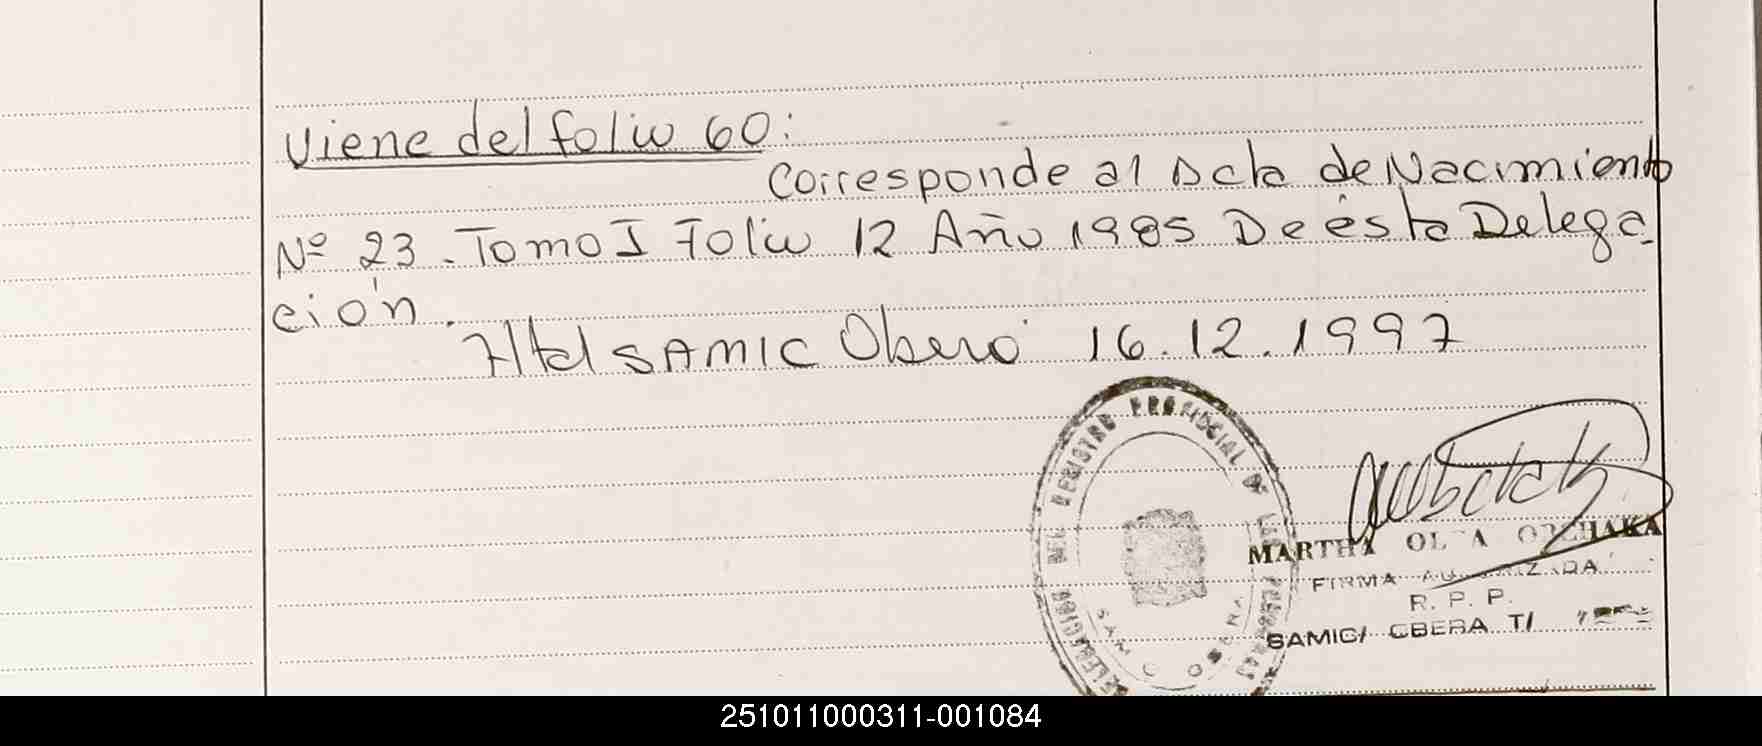 Viene del folio 60:
Corresponde al Acta de Nacimiento
Nº 23. Tomo I Folio 12 Año 1985 De ésta Delega
ción.
Htal SAMIC Oberá 16.12.1997
DELEGACION DEL REGISTRO PROVINCIAL DE LAS PERSONAS
SAMIC OBERA
MARTHA OLGA
FIRMA AUTORIZADA
R. P. P.
SAMIC/ OBERA T/
251011000311-001084